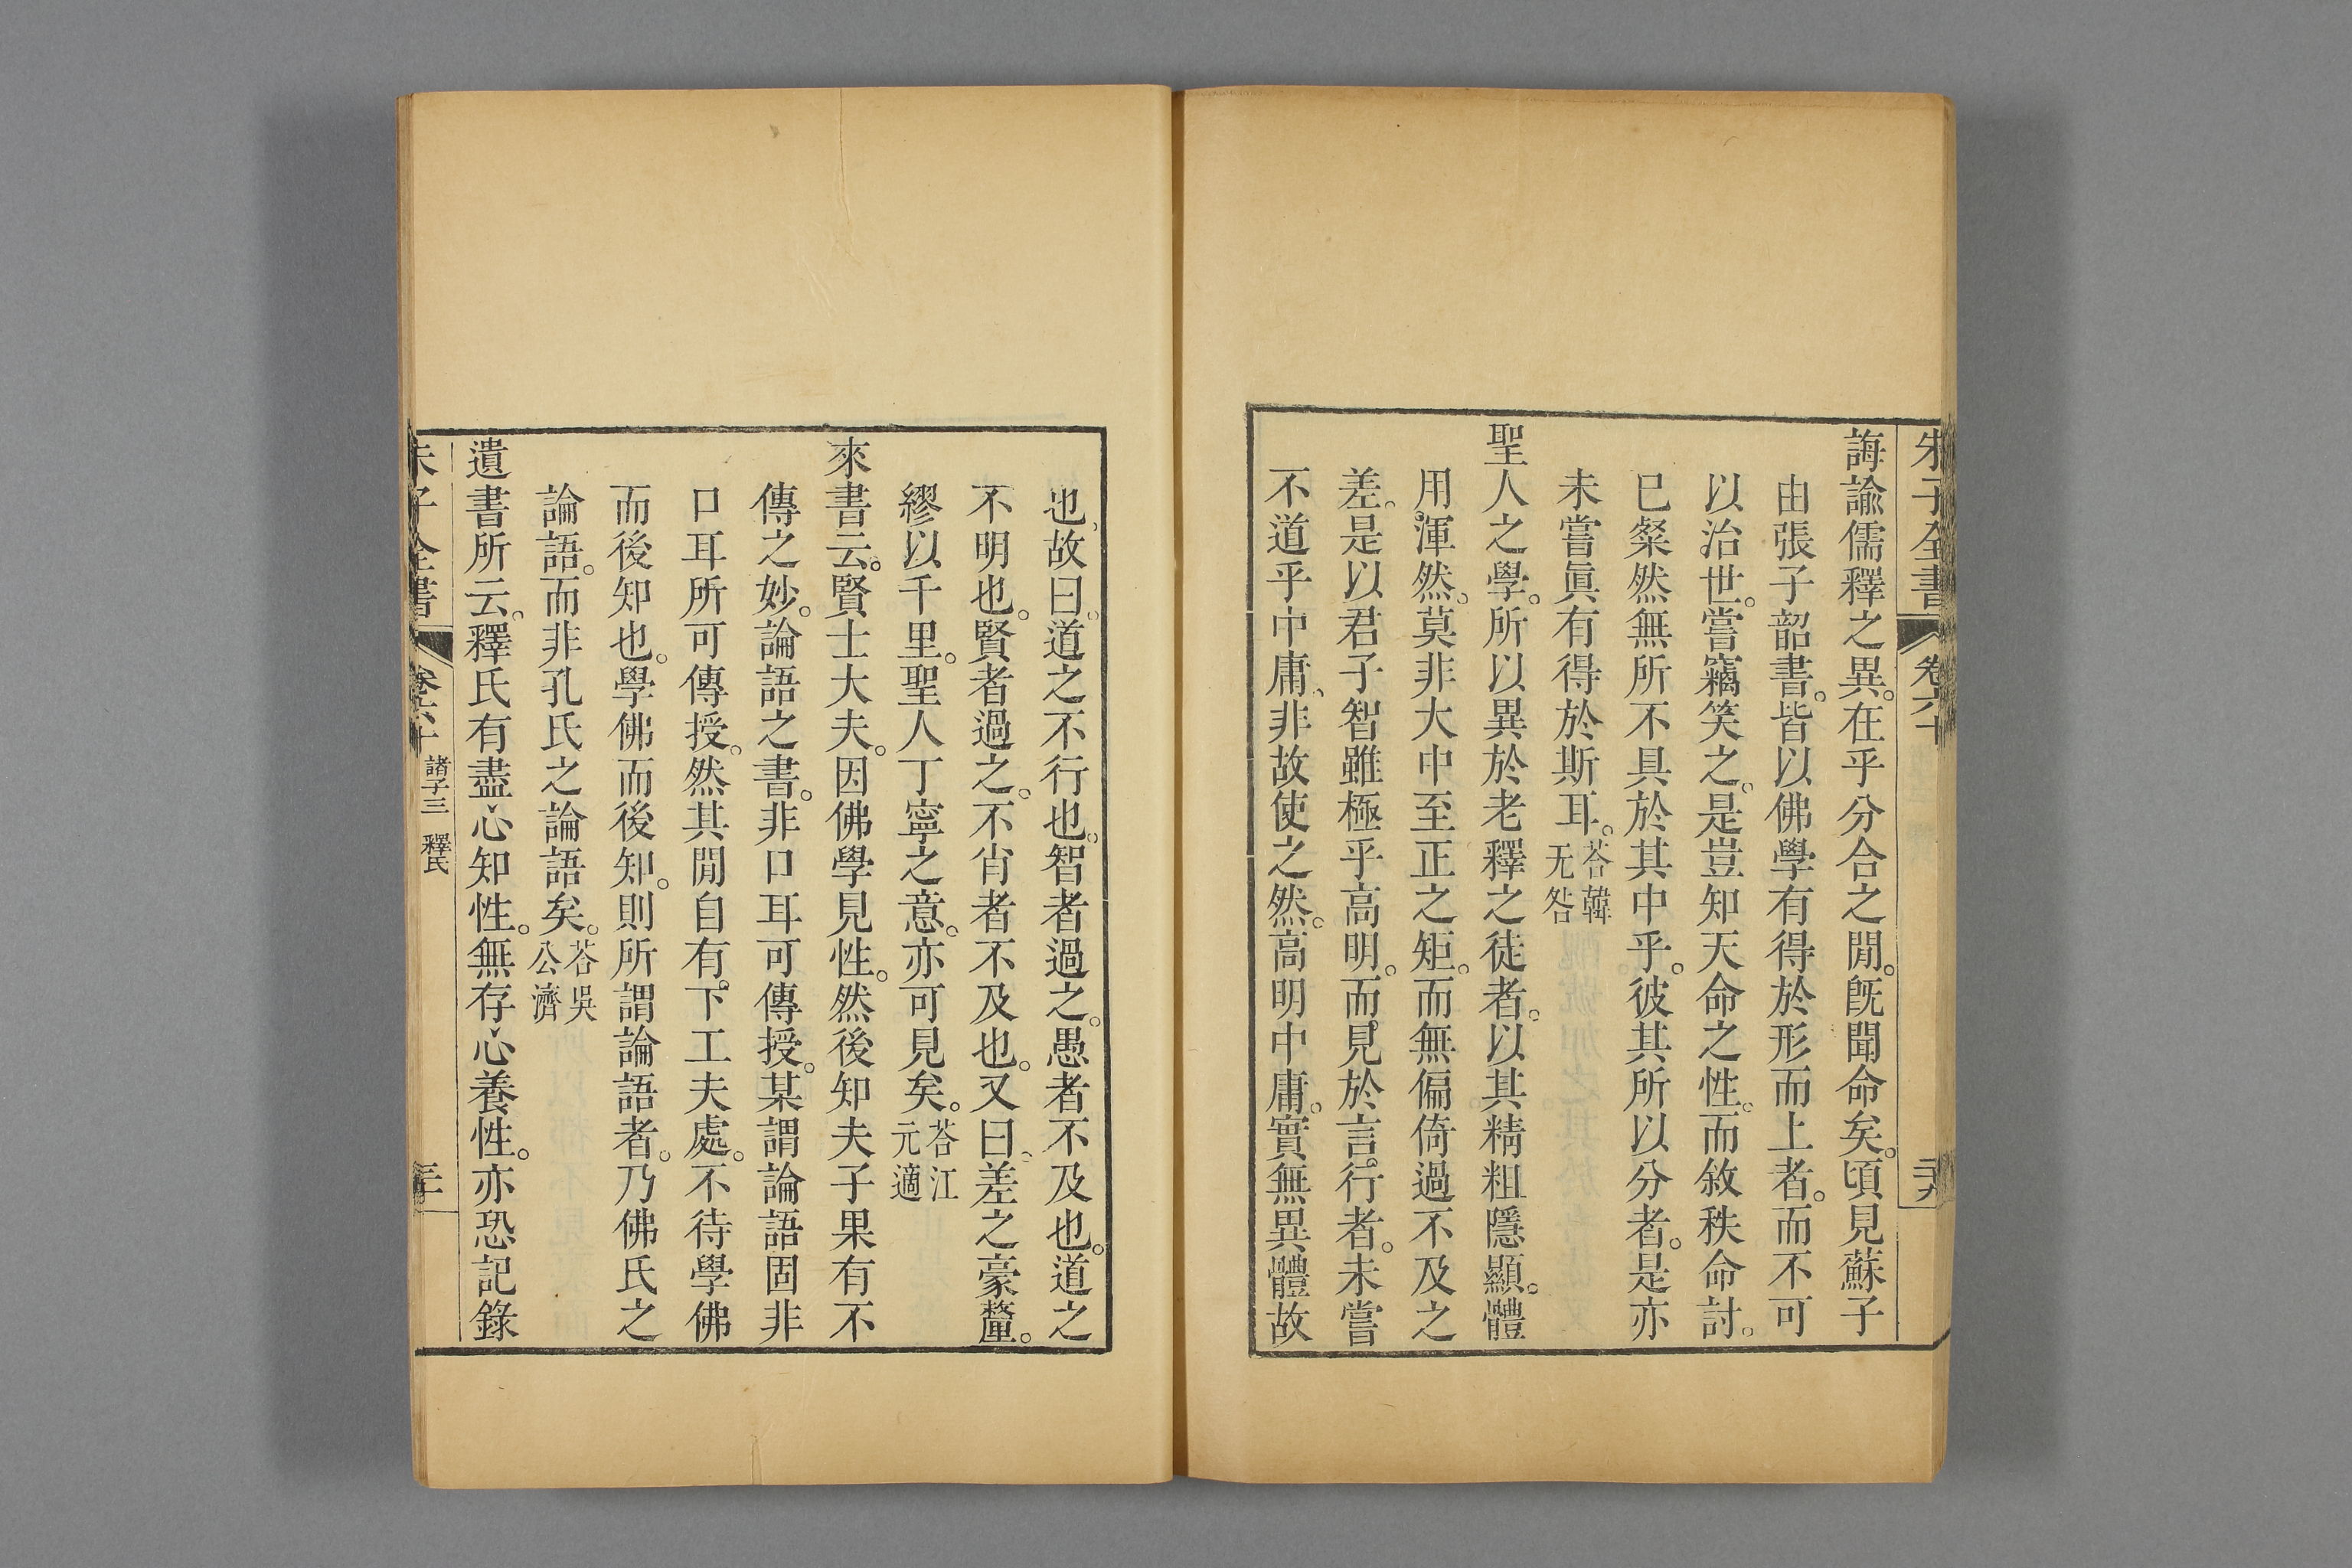 朱子全書 卷六十 二十九
誨諭儒釋之異。在乎分合之閒。旣聞命矣。頃見蘇子
由張子韶書。皆以佛學有得於形而上者。而不可
以治世。嘗竊笑之。是豈知天命之性。而敘秩命討。
已粲然無所不具於其中乎。彼其所以分者。是亦
未嘗眞有得於斯耳。荅韓无咎
聖人之學。所以異於老釋之徒者。以其精粗隱顯。體
用。渾然。莫非大中至正之矩。而無偏倚過不及之
差。是以君子智雖極乎高明。而見於言。行者。未嘗
不道乎中庸、非故使之然。高明中庸。實無異體故
也、故曰。道之不行也。智者過之。愚者不及也。道之
不明也。賢者過之。不肖者不及也。又曰、差之豪釐。
繆以千里。聖人丁寧之意。亦可見矣。荅江元適
來書云。賢士大夫。因佛學見性。然後知夫子果有不
傳之妙。論語之書。非口耳可傳授。某謂論語固非
口耳所可傳授。然其閒自有。下工夫處。不待學佛
而後知也。學佛而後知。則所謂論語者。乃佛氏之
論語。而非孔氏之論語矣。荅吳公濟
遺書所云。釋氏有盡心知性。無存心養性。亦恐記錄
朱子全書 卷六十 諸子三 釋氏